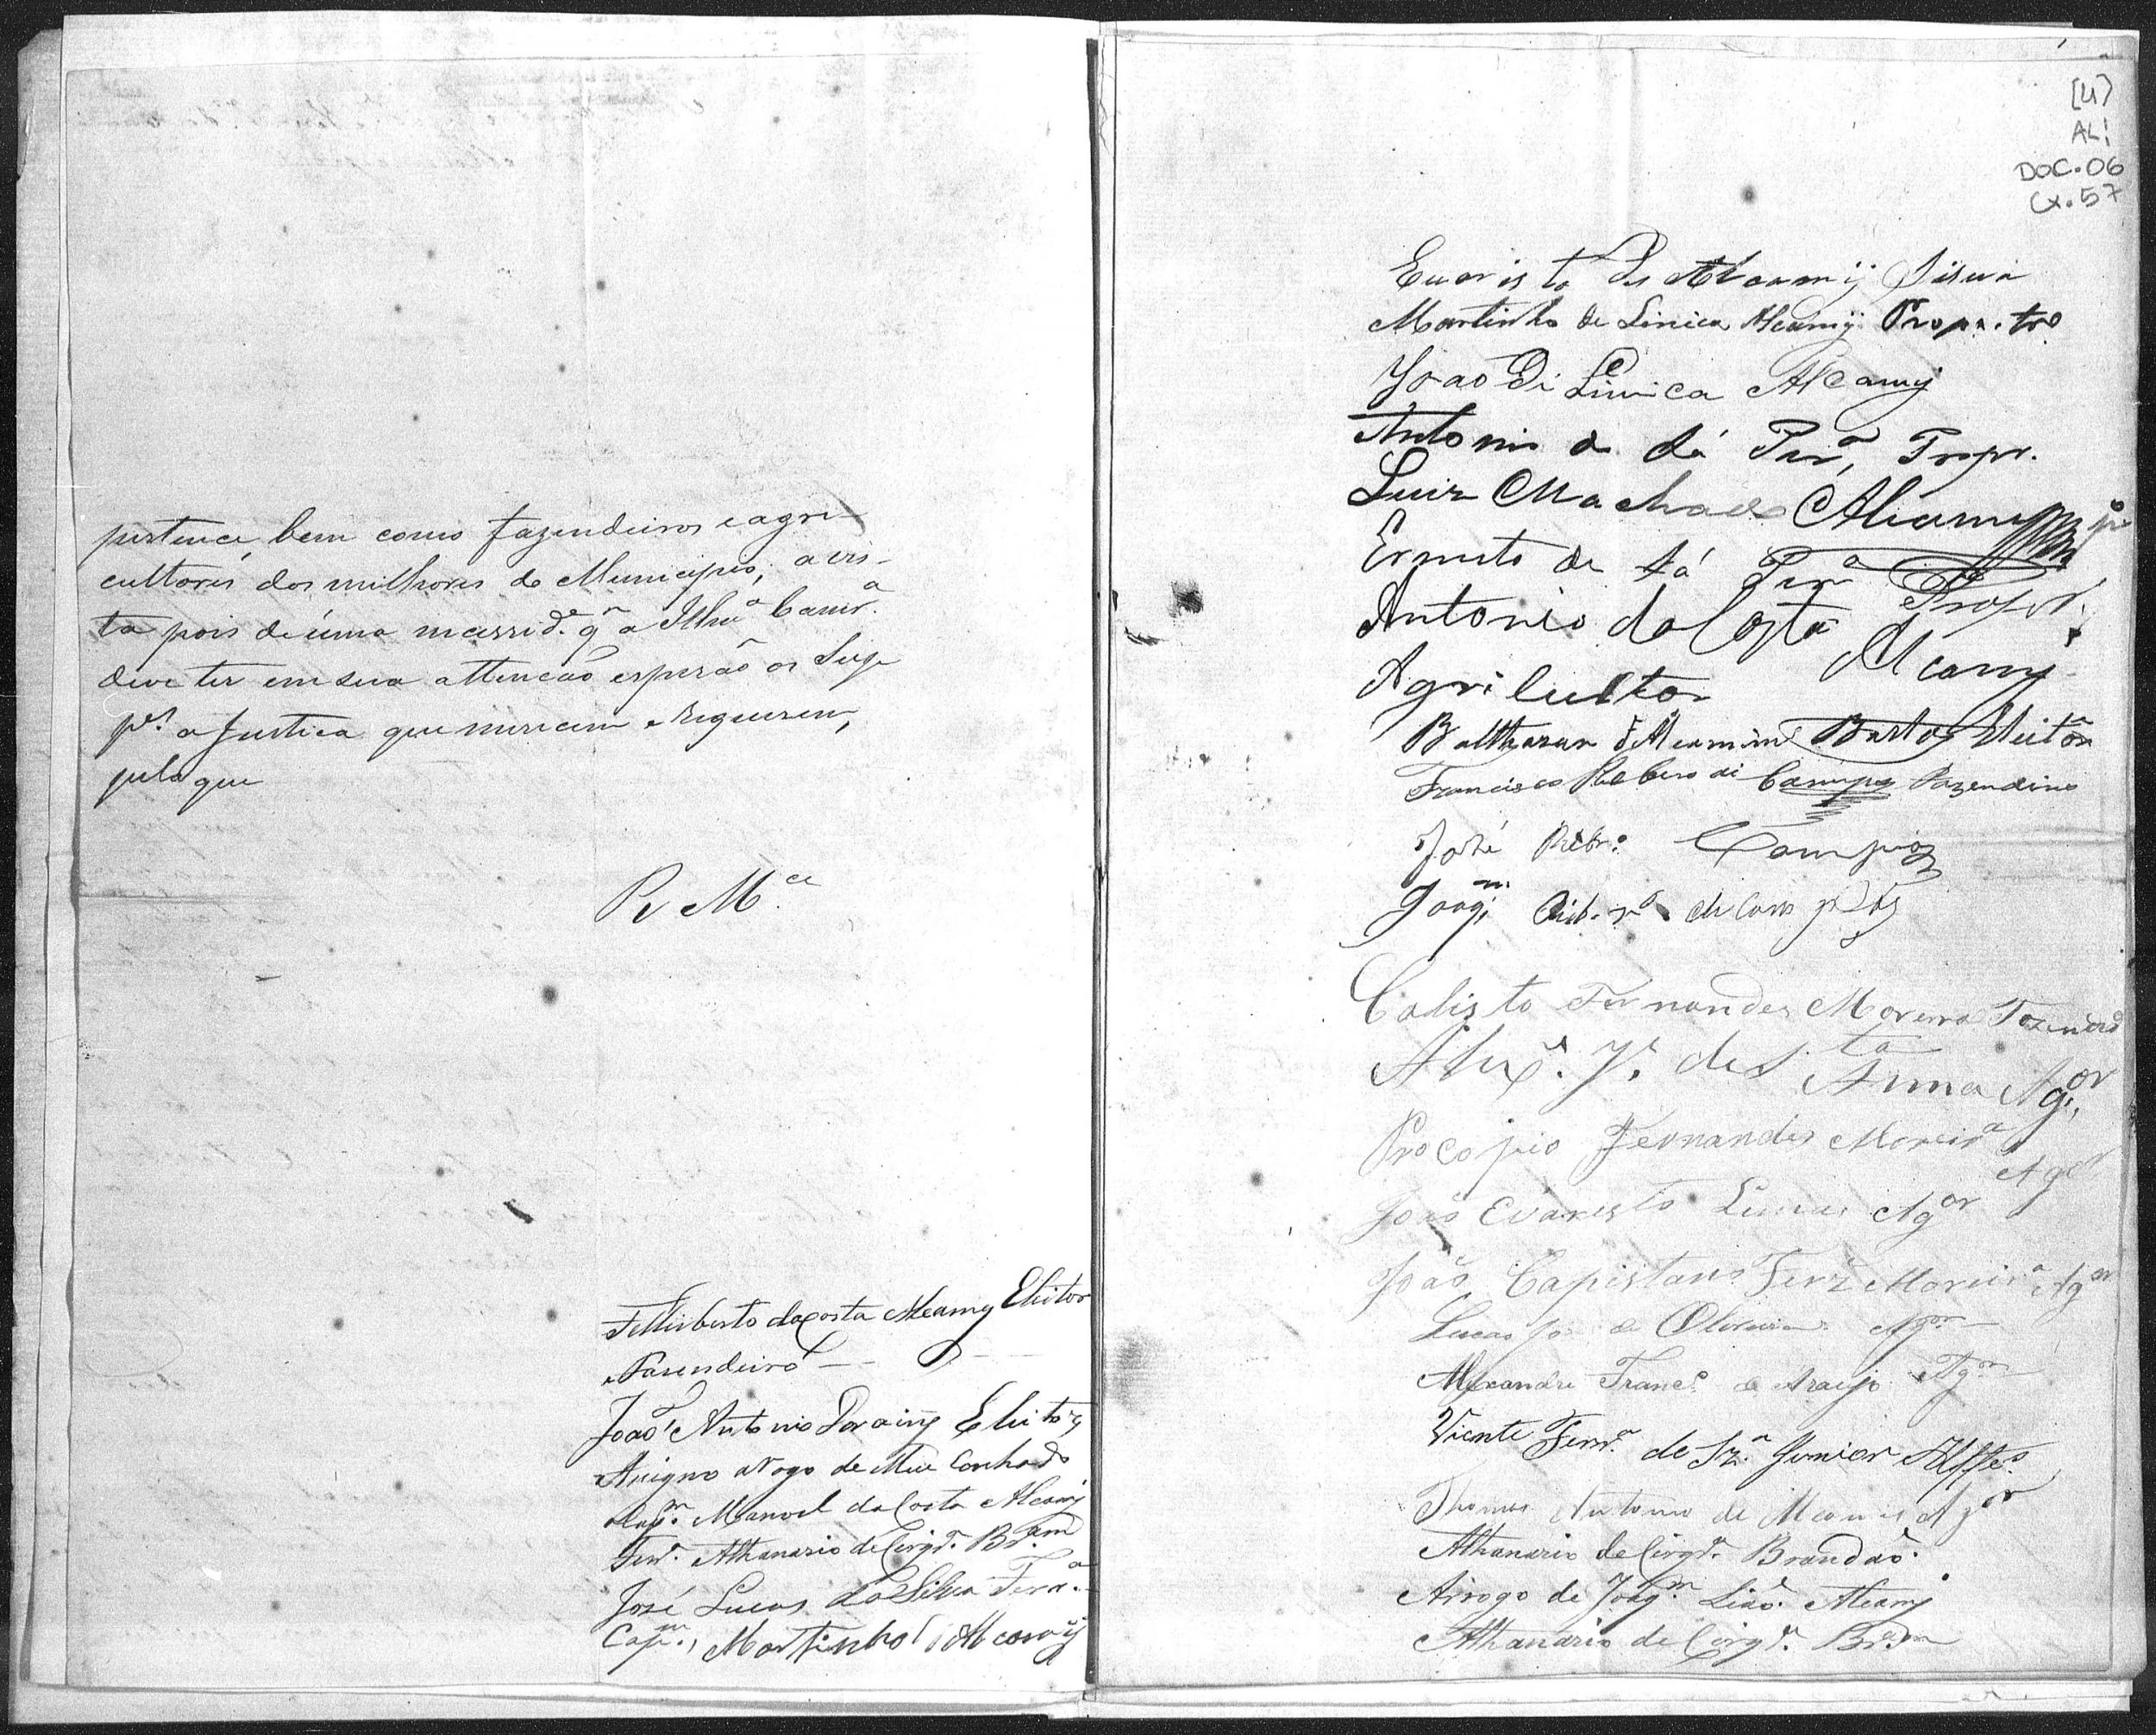 pertence, bem como fazendeiros e agri-
cultores dos milhores do Municipio; a vis-
ta pois de úma necessid.e q~ a Illma Camr.a
deve ter em sua attencão esperão os Supp
p.es a Justica que merecem e requerem,
pelo que
R M.ce
Felisberto da Costa Alcamy Eleitor
e Fasendeiro
João Antonio Eleitor
Arigno a rogo de Meu Cunhado
Manoel da Costa Alcamy
Ten.e Athanasio de Cirqr.a Br.am
José Lucas da Silva Ferr.a
Cap.m Martinho Alcamy
[4]
AL!
DOC. 06
Cx. 57
Evaristo de Alcamij
Martinho de Alcamij Propr.tro
João di Alcamij
Antonio de Sá Per.a, Propr.
Luiz Machado Alcamij
Ernesto de Sá Per.a Propr.
Antonio da Costa Alcamy
Agricultor
Balthasar Bastos Eleitor
Francisco Rebero di Campos Fazendeiro
José Rebr.o Campos
Joaq.m de Campos
Calisto Fernandes Moreira Fazendro
J.e de S.ta Anna Ag.or
Procopio Fernandes Moreira Ag.or
João Evaristo Ag.or
João Capistano Ferz Moreira Ag.or
Lucas Jo.e de Oliveira Ag.or
Alexandre Franc.o de Araujo Ag.or
Vicente Ferr.a de Sz.a Junior Alffes.
Thomas Antonio de Ag.or
Athanasio de Cirqr.a Brandão.
Arrogo de Joaq.m Leão Alcamy
Athanasio de Cirqr.a Br.am